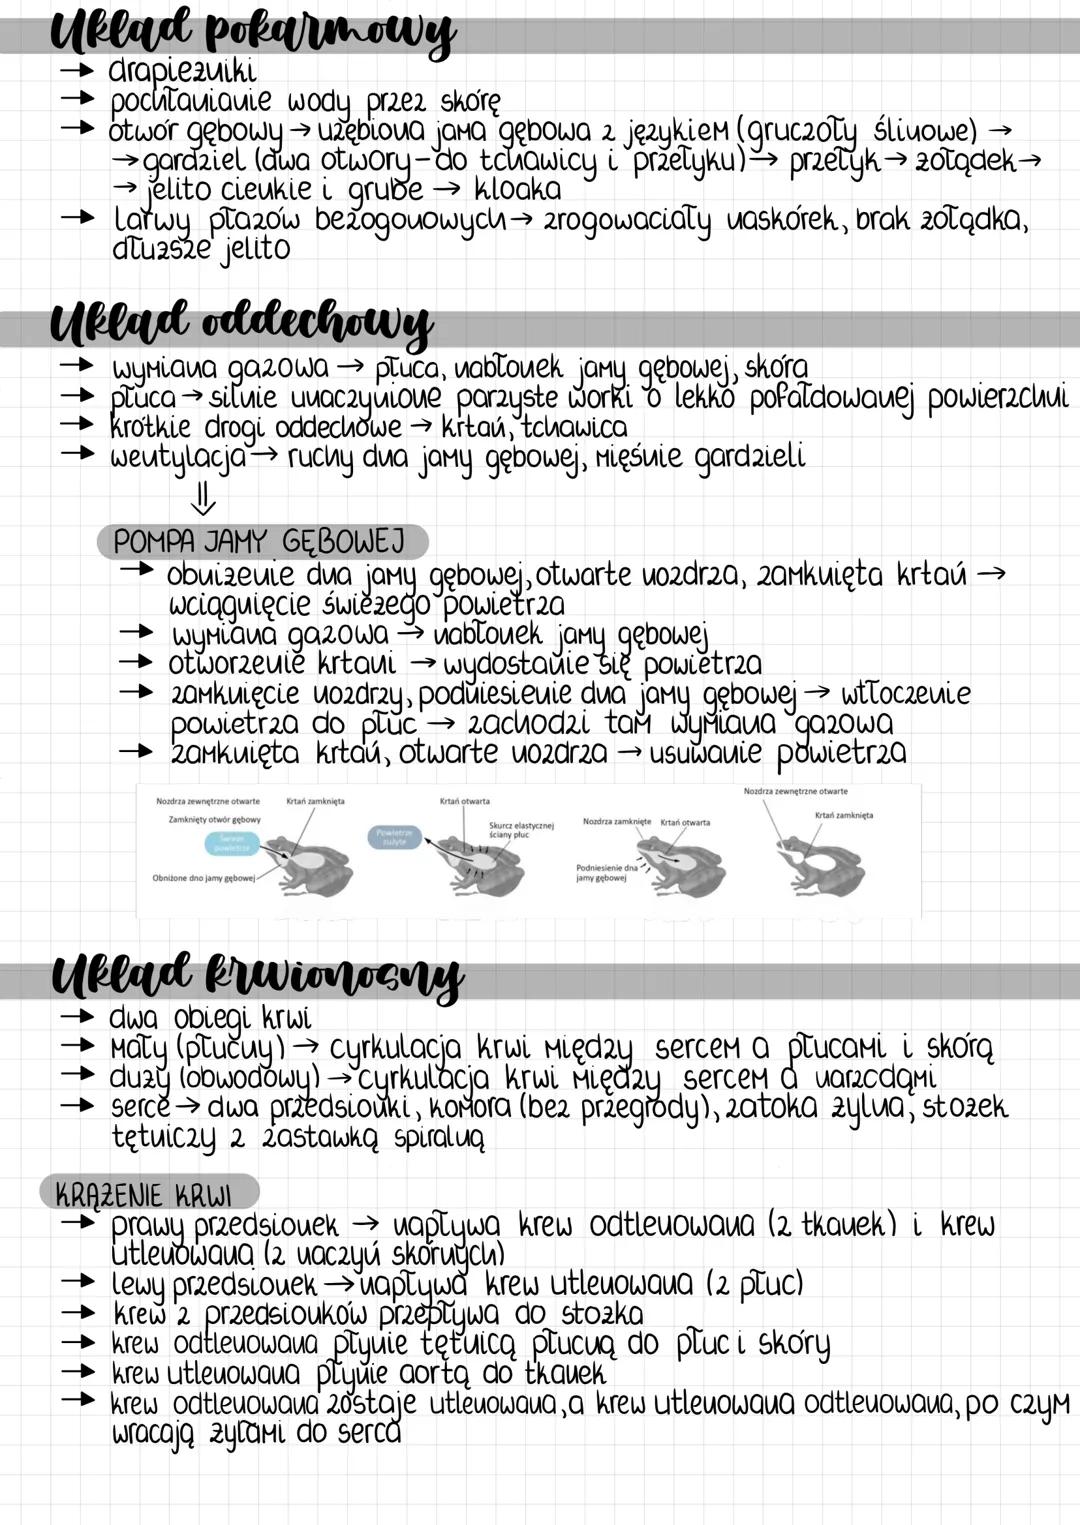 Układ pokarmowy
→ drapieżniki
→ pochłanianie wody przez skórę
→ otwór gębowy → uzębiona jama gębowa z językiem (gruczoły ślinowe) →
→ gardziel (dwa otwory-do tchawicy i przełyku) → przełyk → żołądek →
→ jelito cienkie i grube → kloaka
→ larwy płazów bezogonowych → zrogowaciały naskórek, brak żołądka,
dłuższe jelito
Układ oddechowy
→ wymiana gazowa → płuca, nabłonek jamy gębowej, skóra
→ płuca → silnie unaczynione parzyste worki o lekko pofałdowanej powierzchni
→ krótkie drogi oddechowe → krtań, tchawica
→ wentylacja → ruchy dna jamy gębowej, mięśnie gardzieli
⇓
POMPA JAMY GĘBOWEJ
→ obniżenie dna jamy gębowej, otwarte nozdrza, zamknięta krtań →
wciągnięcie świeżego powietrza
→ wymiana gazowa → nabłonek jamy gębowej
→ otworzenie krtani → wydostanie się powietrza
→ zamknięcie nozdrzy, podniesienie dna jamy gębowej → wtłoczenie
powietrza do płuc → zachodzi tam wymiana gazowa
→ zamknięta krtań, otwarte nozdrza → usuwanie powietrza
Nozdrza zewnętrzne otwarte
Krtań zamknięta
Zamknięty otwór gębowy
Świeże
powietrze
Obniżone dno jamy gębowej
Krtań otwarta
Powietrze
zużyte
Skurcz elastycznej
ściany płuc
Nozdrza zamknięte
Krtań otwarta
Podniesienie dna
jamy gębowej
Nozdrza zewnętrzne otwarte
Krtań zamknięta
Układ krwionosny
→ dwa obiegi krwi
→ mały (płucny) → cyrkulacja krwi między sercem a płucami i skórą
→ duży (obwodowy) → cyrkulacja krwi między sercem a narzcdąmi
→ serce → dwa przedsionki, komora (bez przegrody), zatoka żylna, stożek
tętniczy z zastawką spiralną
KRĄŻENIE KRWI
→ prawy przedsionek → napływa krew odtlenowana (z tkanek) i krew
utlenowana (z naczyń skórnych)
→ lewy przedsionek → napływa krew utlenowana (z płuc)
→ krew z przedsionków przepływa do stożka
→ krew odtlenowana płynie tętnicą płucną do płuc i skóry
→ krew utlenowana płynie aortą do tkanek
→ krew odtlenowana zostaje utlenowana, a krew utlenowana odtlenowana, po czym
wracają żyłami do serca